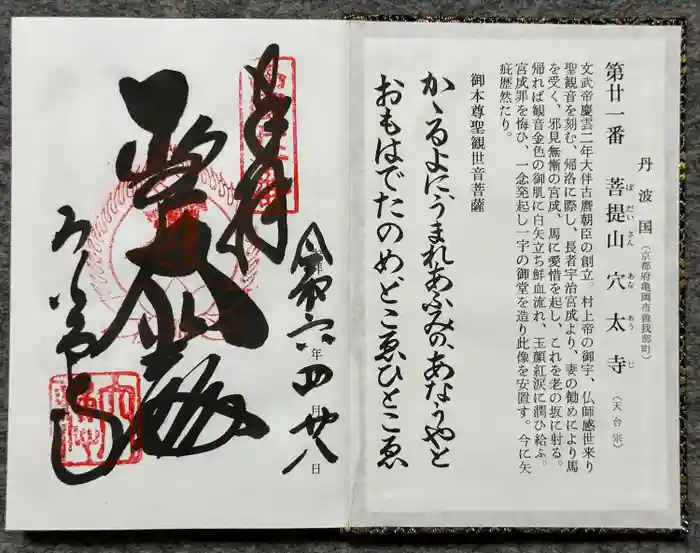 丹波国(京都府亀岡市曽我部町)
第廿一番 菩提山 穴太寺(天台宗)
ぼだいさん あなおうじ
文武帝慶雲二年大伴古麿朝臣の創立。村上帝の御宇、仏師感世来り
聖観音を刻む、帰洛に際し、長者宇治宮成より、妻の勧めにより馬
を受く、邪見無慚の宮成、馬に愛惜を起し、これを老の坂に射る。
帰れば観音金色の御肌に白矢立ち鮮血流れ、玉顔紅涙に潤ひ給ふ。
宮成罪を悔ひ、一念発起し一宇の御堂を造り此像を安置す。今に矢
疵歴然たり。
御本尊聖観世音菩薩
かゝるよにうまれあふみのあなうやと
おもはでたのめとこゑひとこゑ
奉拝
令和六年四月廿八日
聖大悲殿